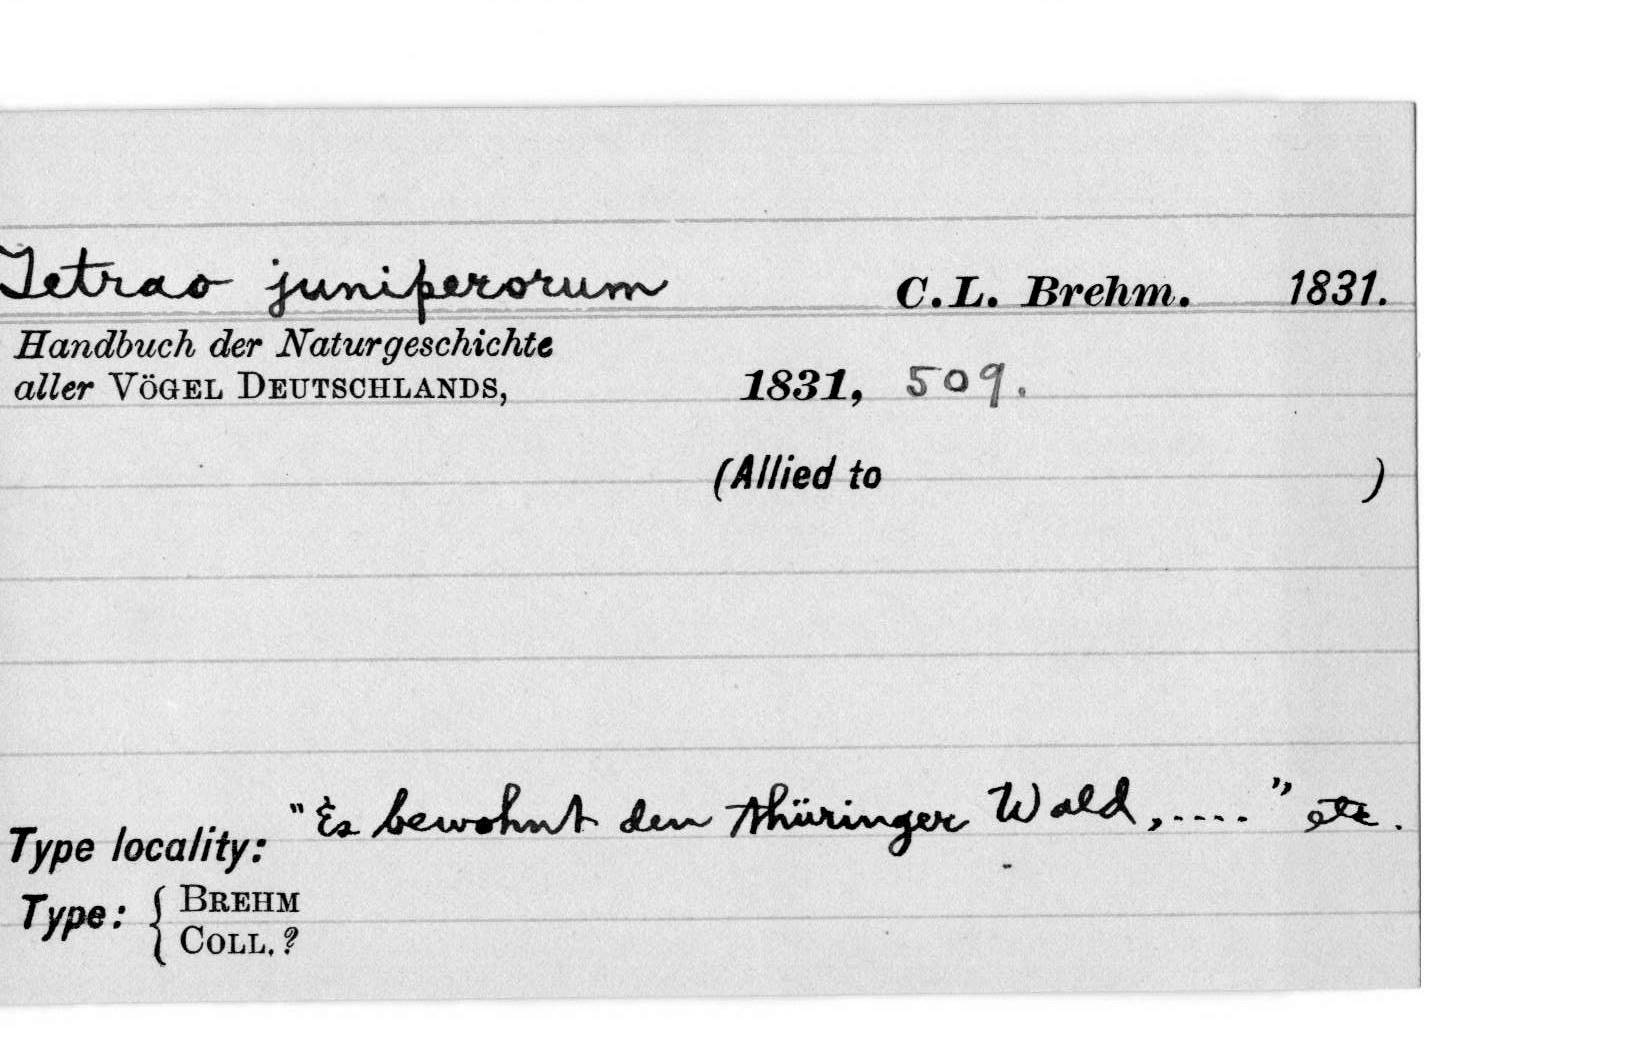 Tetrao juniperorum C.L. Brehm. 1831.
Handbuch der Naturgeschichte
aller VÖGEL DEUTSCHLANDS, 1831, 509.
(Allied to )
Type locality: "Es bewohnt den thüringer Wald,....." etc.
Type: { BREHM
COLL. ?